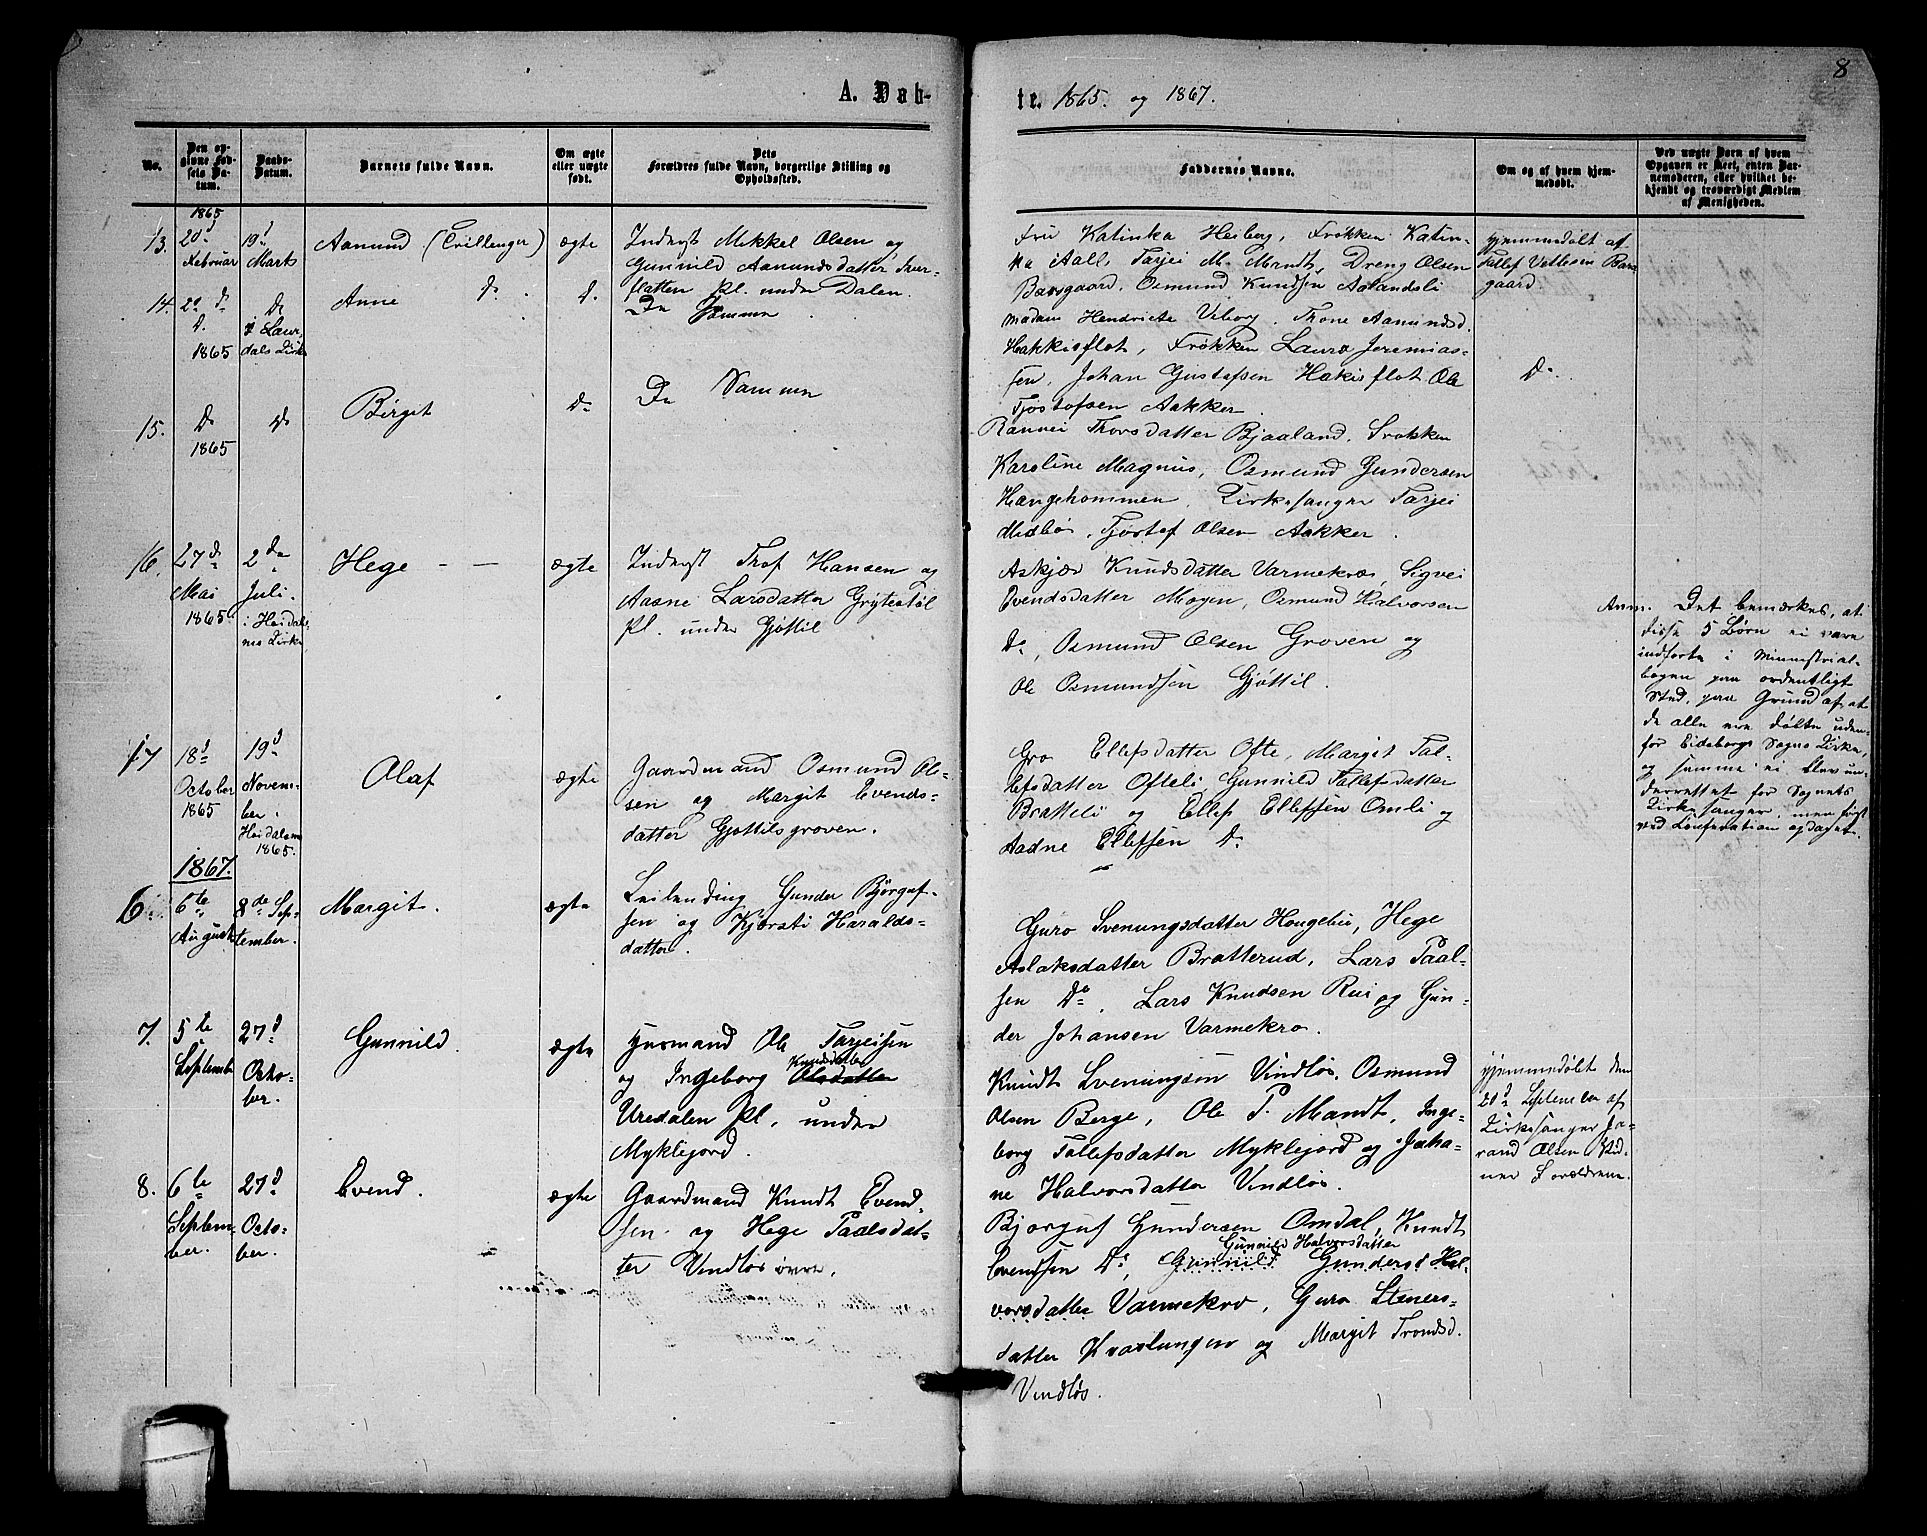 8
A. Døb-
te. 1865. og 1867.
No.
Den op-
givne Fød-
sels Da-
tum.
Daabs-
Datum.
Barnets fulde Navn.
Om ægte
eller uægte
født.
Dets
Forældres fulde Navn, borgerlige Stilling og
Opholdssted.
Faddernes Navne.
Om og af hvem hjem-
medøbt.
Ved uægte Barn af hvem
Opgaven er skeet, enten Bar-
nemoderen, eller hvilket be-
kjendt og troværdigt Medlem
af Menigheden.
1865
13.
20de
Februar
19de
Marts
Aamund (Trillenger)
ægte
Inderst Mikkel Olsen og
Gunnild Aamundsdatter
flatten Pl. under Dalen.
Fru Katinka Heiberg, Frøkken Katin-
ka Aall, Tarjei M. Mandt, Dreng Olsen
Baosgaard, Osmund Knudsen Aalandsli
Hjemmedøbt af
Tallef Vetlesen Baas
gaard
14.
20 d
D.
1865
Do
i Laur
dals Kirke
Anne Do.
Do.
De Sammen
Madam Hendriete Viborg, Thone Aamundsd.
Hakkisflot, Frøkken Laura Jeremias-
sen, Johan Gustafsen Hakisflot Ole
Tjøstofsen Aakker.
Do.
15.
Do
1865
Do
Birgit
Do
De Sammen
Rannei Thorsdatter Bjaaland, Frøkken
Karoline Magnus, Osmund Gundersen
Hængehommen, Kirkesanger Tarjei
Midbøe, Tjøstof Olsen Aakker.
16.
27de
Mai
1865
2den
Juli
i Høidals
nes Kirke
Hege - -
ægte
Inderst Thof Hansen og
Aasne Larsdatter Grytestøl
Pl. under Gjøttil
Askjær Knudsdatter Varmekros, Sigvei
Evendsdatter Mogen, Osmund Halvorsen
Do, Osmund Olsen Groven og
Ole Osmundsen Gjøttil.
Anm. Det bemærkes, at
disse 5 Børn ei vare
indførte i Minnistrial-
bogen paa ordentligt
Sted, paa Grund af at
de alle ere døbte uden-
for Eidsborgs Sogns Kirke,
og samme ei blev un-
derrettet for Sognets
Kirkesanger, men først
ved Konfirmation opdaget.
17
18de
October
1865
19de
Novem-
ber i
Høidalsmo
1865.
Olaf
ægte
Gaardmand Osmund Ol-
sen og Margit Evends-
datter Gjøttilsgroven.
Gro Ellefsdatter Ofte, Margit Tal-
lefsdatter Ofteli, Gunnild Tallefsdatter
Bratteli og Ellef Ellefsen Omli og
Aadne Ellefsen Do
1867.
6
6te
August
8de Sep-
tember.
Margit.
ægte
Leilending Gunder Bjørguf-
sen og Kjersti Haralds-
datter.
Guro Svenungsdatter Hougelie, Hege
Aslaksdatter Bratterud, Lars Paal-
sen Do, Lars Knudsen Rui og Gun-
der Johansen Varmekro.
7.
5te
September
27de
Octo-
ber.
Gunnild.
ægte
Husmand Ole Tarjeisen
Knudsdatter
og Ingeborg Olsdatter
Uredalen Pl. under
Myklejord.
Knudt Svenungsen Vindløs, Osmund
Olsen Berge, Ole P. Mandt, Inge-
borg Tallefsdatter Myklejord og Joha-
ne Halvorsdatter Vindløs.
Hjemmedøbt den
20de September af
Kirkesanger Ja-
rand Olsen Vid-
ner Forældrene.
8.
6te
Septem-
ber.
27de
Octo-
ber.
Evend.
ægte
Gaardmand Knudt Evend-
sen og Hege Paalsdat-
ter Vindløs øvre.
Bjørguf Gundersen Omdal, Knudt
Gunnild Halvorsdatter
Evendsen Do, Gunnild Gundersd Hal-
vorsdatter Varmekro, Guro Steners-
datter Kvaalungen og Margit Trondsd.
Vindløs.